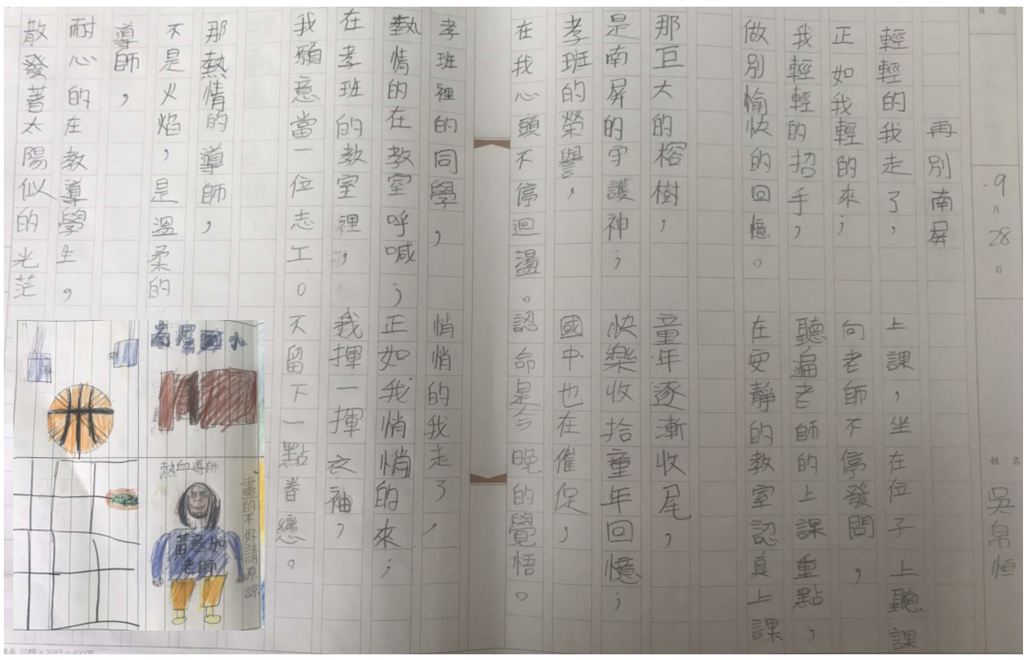 9月28日
姓名
吳帛恒
再別南屏
輕輕的我走了，
正如我輕的來；
我輕輕的招手，
做別愉快的回憶。
那巨大的榕樹，
是南屏的守護神；
孝班的榮譽，
在我心頭不停迴盪。
孝班裡的同學，
熱情的在教室呼喊；
在孝班的教室裡，
我願意當一位志工。
那熱情的導師，
不是火焰，是溫柔的
導師，
耐心的在教導學生。
散發著太陽似的光茫
上課，坐在位子上聽課
向老師不停發問，
聽遍老師的上課重點，
在安靜的教室認真上課
童年逐漸收尾，
快樂收拾童年回憶；
國中也在催促，
認命是今晚的覺悟。
悄悄的我走了，
正如我悄悄的來；
我揮一揮衣袖，
不留下一點眷戀。
南屏國小
熱血導師
畫的不好請原諒
老師